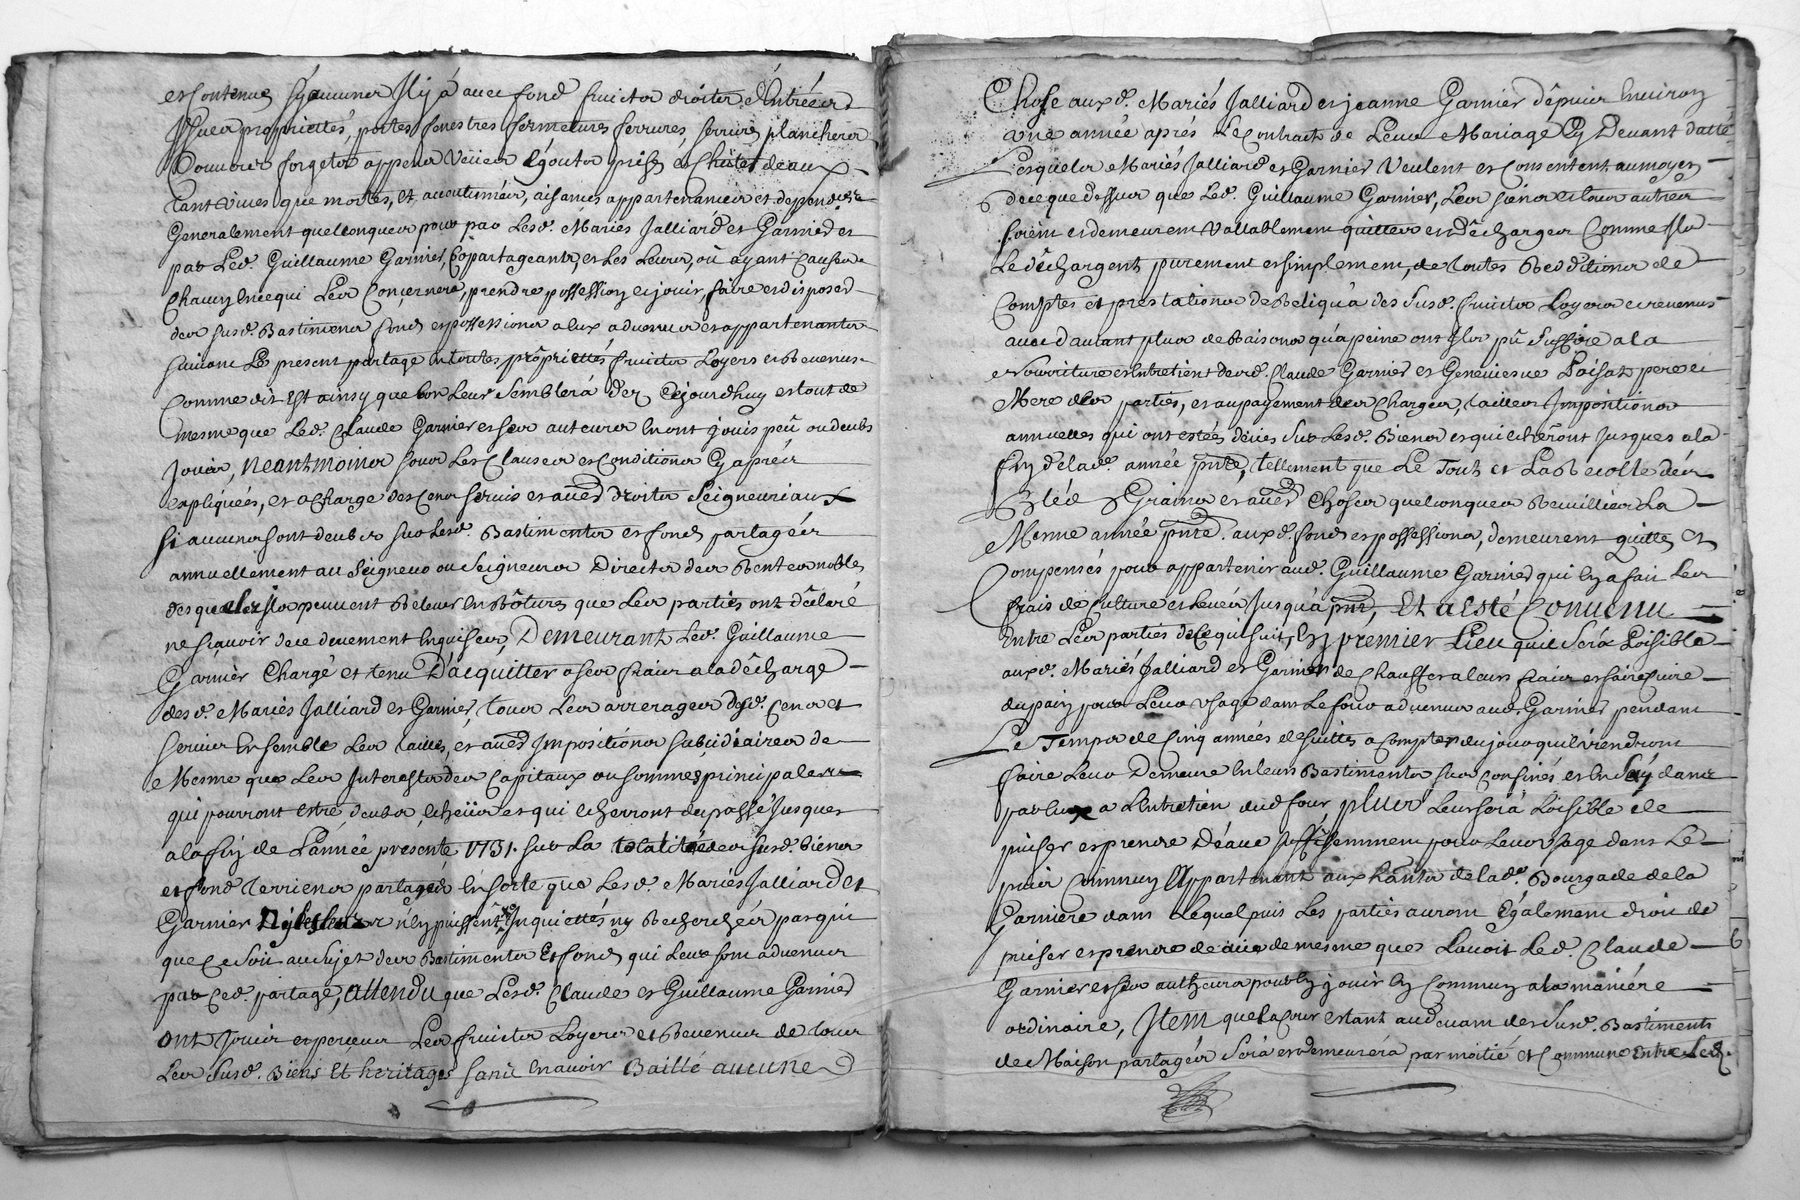 et contenus sy aucuns Il y à avec fond fruicts droits d'Entrées et
Issues propriettés, portes fenestres fermetures ferrures serrures planchers
Couvers forgets appens Vuües Egouts prises et Chutes deaux
tant vives que mortes, et accoutumées, aisances appartenances et dependces
Generalement quelconques pour par Lesd. Mariés Jalliard et Garnier et
par Led. Guillaume Garnier, Copartageants, et Les Leurs, où ayant Cause
Chacun En ce qui Les Concernera, prendre possession et jouir, faire et disposer
des susd. Bastiments fonds et possessions a Eux advenus et appartenants
suivant Le present partage En toutes propriettés fruicts Loyers et Revenus
Comme dit Est ainsy que bon Leur Semblera dez Cejourdhuy et tout de
mesme que Led. Claude Garnier et ses auteurs En ont jouis peû ou deubs
Jouir, Neantmoins sous Les Clauses et Conditions Cy aprés
expliquées, et a Charge des Cens servis et aûes droits Seigneuriaux
si aucuns sont deubs sur Lesd. Bastiments et fonds partagés
annuellement au Seigneur ou Seigneurs Directs des Rentes nobles
desquelles Ils peuvent Relever En Rôtures que Les parties ont dêclaré
ne sçavoir de ce deuement Enquises, Demeurant Led. Guillaume
Garnier Chargé et tenu D'acquitter a ses frais a la dêcharge
desd. Mariés Jalliard et Garnier, tous Les arrerages desd. Cens et
servis Ensemble Les tailles, et aûes Impositions subsidiaires de
Mesme que Les Interests des Capitaux ou sommes principales
qui pourront Estre deubs, Echeüs et qui Echerront du passé Jusques
a la fin de L'année présente 1731. sur La totalité des susd. biens
et fonds terriens partagés En sorte que Lesd. Mariés Jalliard et
Garnier Ny les leurs n'En puissent Estre Inquiettés ny Recherchés par qui
que Ce soit au Sujet des Bastiments Et fonds qui Leur sont advenus
par Ced. partage, attendu que Lesd. Claude et Guillaume Garnier
ont Jouis et perceus Les fruicts Loyers et Revenus de tous
Les Susd. Biens Et heritages sans En avoir Baillé aucune
Chose auxd. Mariés Jalliard et jeanne Garnier dêpuis Environ
une année aprés Le Contract de Leur Mariage Cy Devant datté
Lesquels Mariés Jalliard et Garnier Veulent et Consentent au moyen
de ce que dessus que Led. Guillaume Garnier, Les siens et tous autres
soient et demeurent Vallablement quittes et dêcharges Comme Ils
Le dêchargent purement et simplement, de toutes Redditions de
Comptes et prestations de Reliqua des Susd. fruicts Loyers et revenus
avec d'autant plus de Raisons qu'a peine ont Ils pû Suffire a la
Nourriture et Entretient desd. Claude Garnier et Genevieve Loisat pere et
Mere des parties, et au payement des Charges, tailles Impositions
annuelles qui ont estées dües sur Lesd. Biens et qui Echêront jusques a la
fin de lad. année pnte, tellement que Le Tout et La Recolte des
Bleds Grains et aûes Choses quelconques Reuillies La
Mesme année pnte. auxd. fonds et possessions, demeurent quittes et
Compensés pour appartenir aud. Guillaume Garnier qui En a fait Les
frais de Culture et Levée Jusqu'a pnt, Et a Esté Convenu
Entre Les parties de Ce qui suit, En premier Lieu qu'il Sera Loisible
auxd. Mariés Jalliard et Garnier de Chauffer a leurs frais et faire Cuire
du pain pour Leur Usage dans Le four advenus aud. Garnier pendant
Le Temps de Cinq années de suittes a Compter du jour qu'ils viendront
faire Leur Demeure En leurs Bastiments sus Confinés et En
par Eux a L'Entretien dud four plus Leur sera Loisible de
puiser et prendre De L'eau suffisemment pour Leur Usage dans Le
puis Commun Appartenant aux hants de lad. Bourgade de la
Garniere dans Lequel puis Les parties auront Egalement droit de
puiser et prendre de L'eau de mesme que L'avoit Led. Claude
Garnier et ses autheurs pour En jouir En Commun a la maniére
ordinaire, Item que La Cour estant au devant des Susd. Bastiments
de Maison partagés Sera et demeurera par moitié et Commune Entre Lesd.